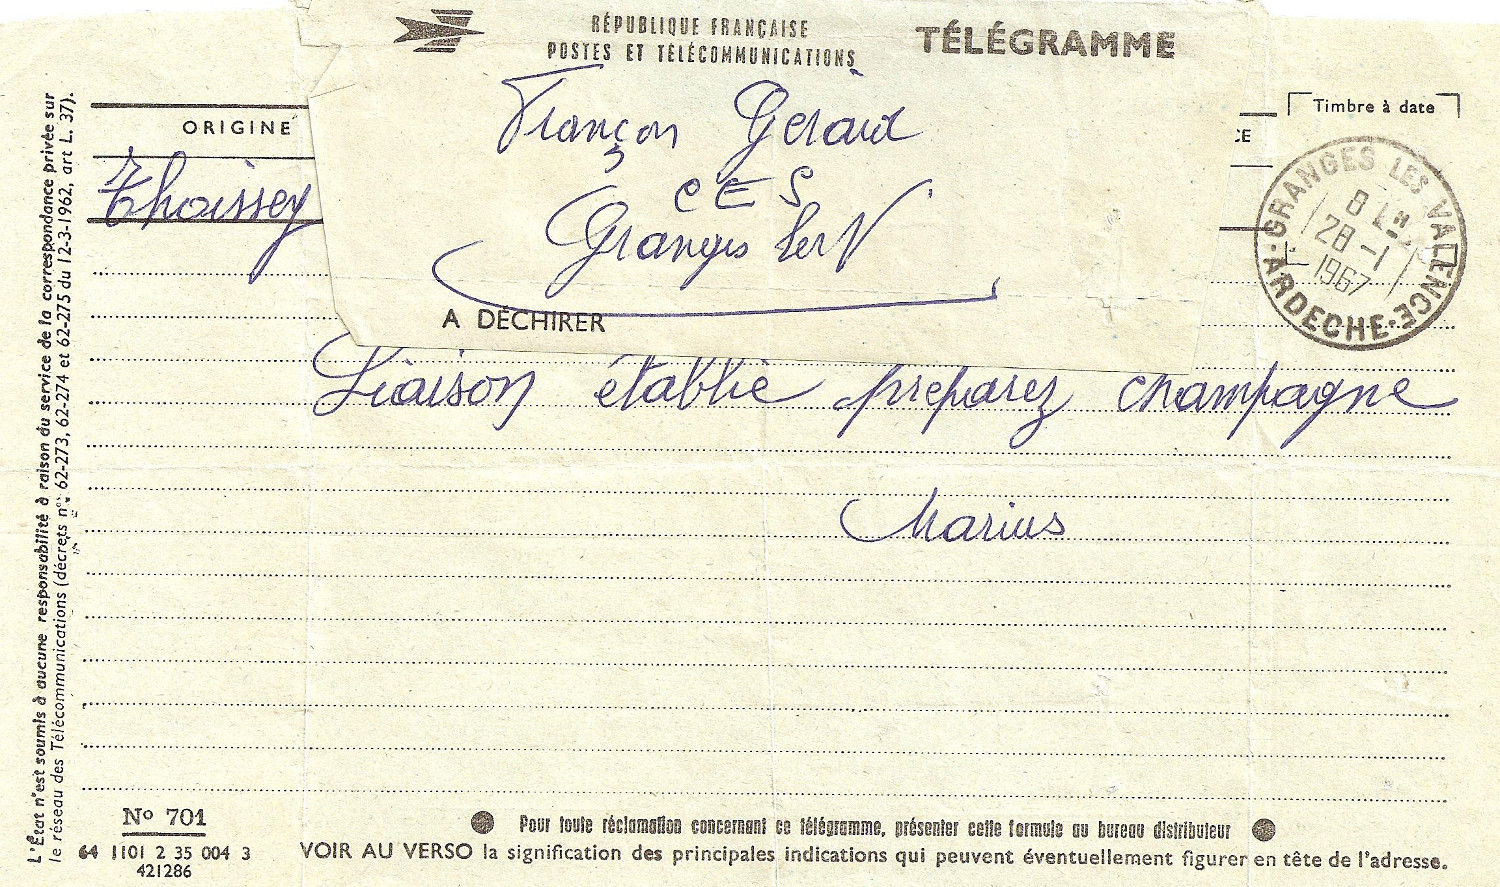 RÉPUBLIQUE FRANÇAISE
POSTES ET TÉLÉCOMMUNICATIONS
TÉLÉGRAMME
Françon Gérard
CES
Granges les V
A DÉCHIRER
ORIGINE
Thoissey
CE
Timbre à date
GRANGES LES VALENCE
ARDECHE
8 H
28 -1
1967
Liaison établie préparez champagne
Marius
L'État n'est soumis à aucune responsabilité à raison du service de la correspondance privée sur
le réseau des Télécommunications (décrets nos 62-273, 62-274 et 62-275 du 12-3-1962, art L. 37).
No 701
64 1101 2 35 004 3
421286
Pour toute réclamation concernant ce télégramme, présenter cette formule au bureau distributeur
VOIR AU VERSO la signification des principales indications qui peuvent éventuellement figurer en tête de l'adresse.